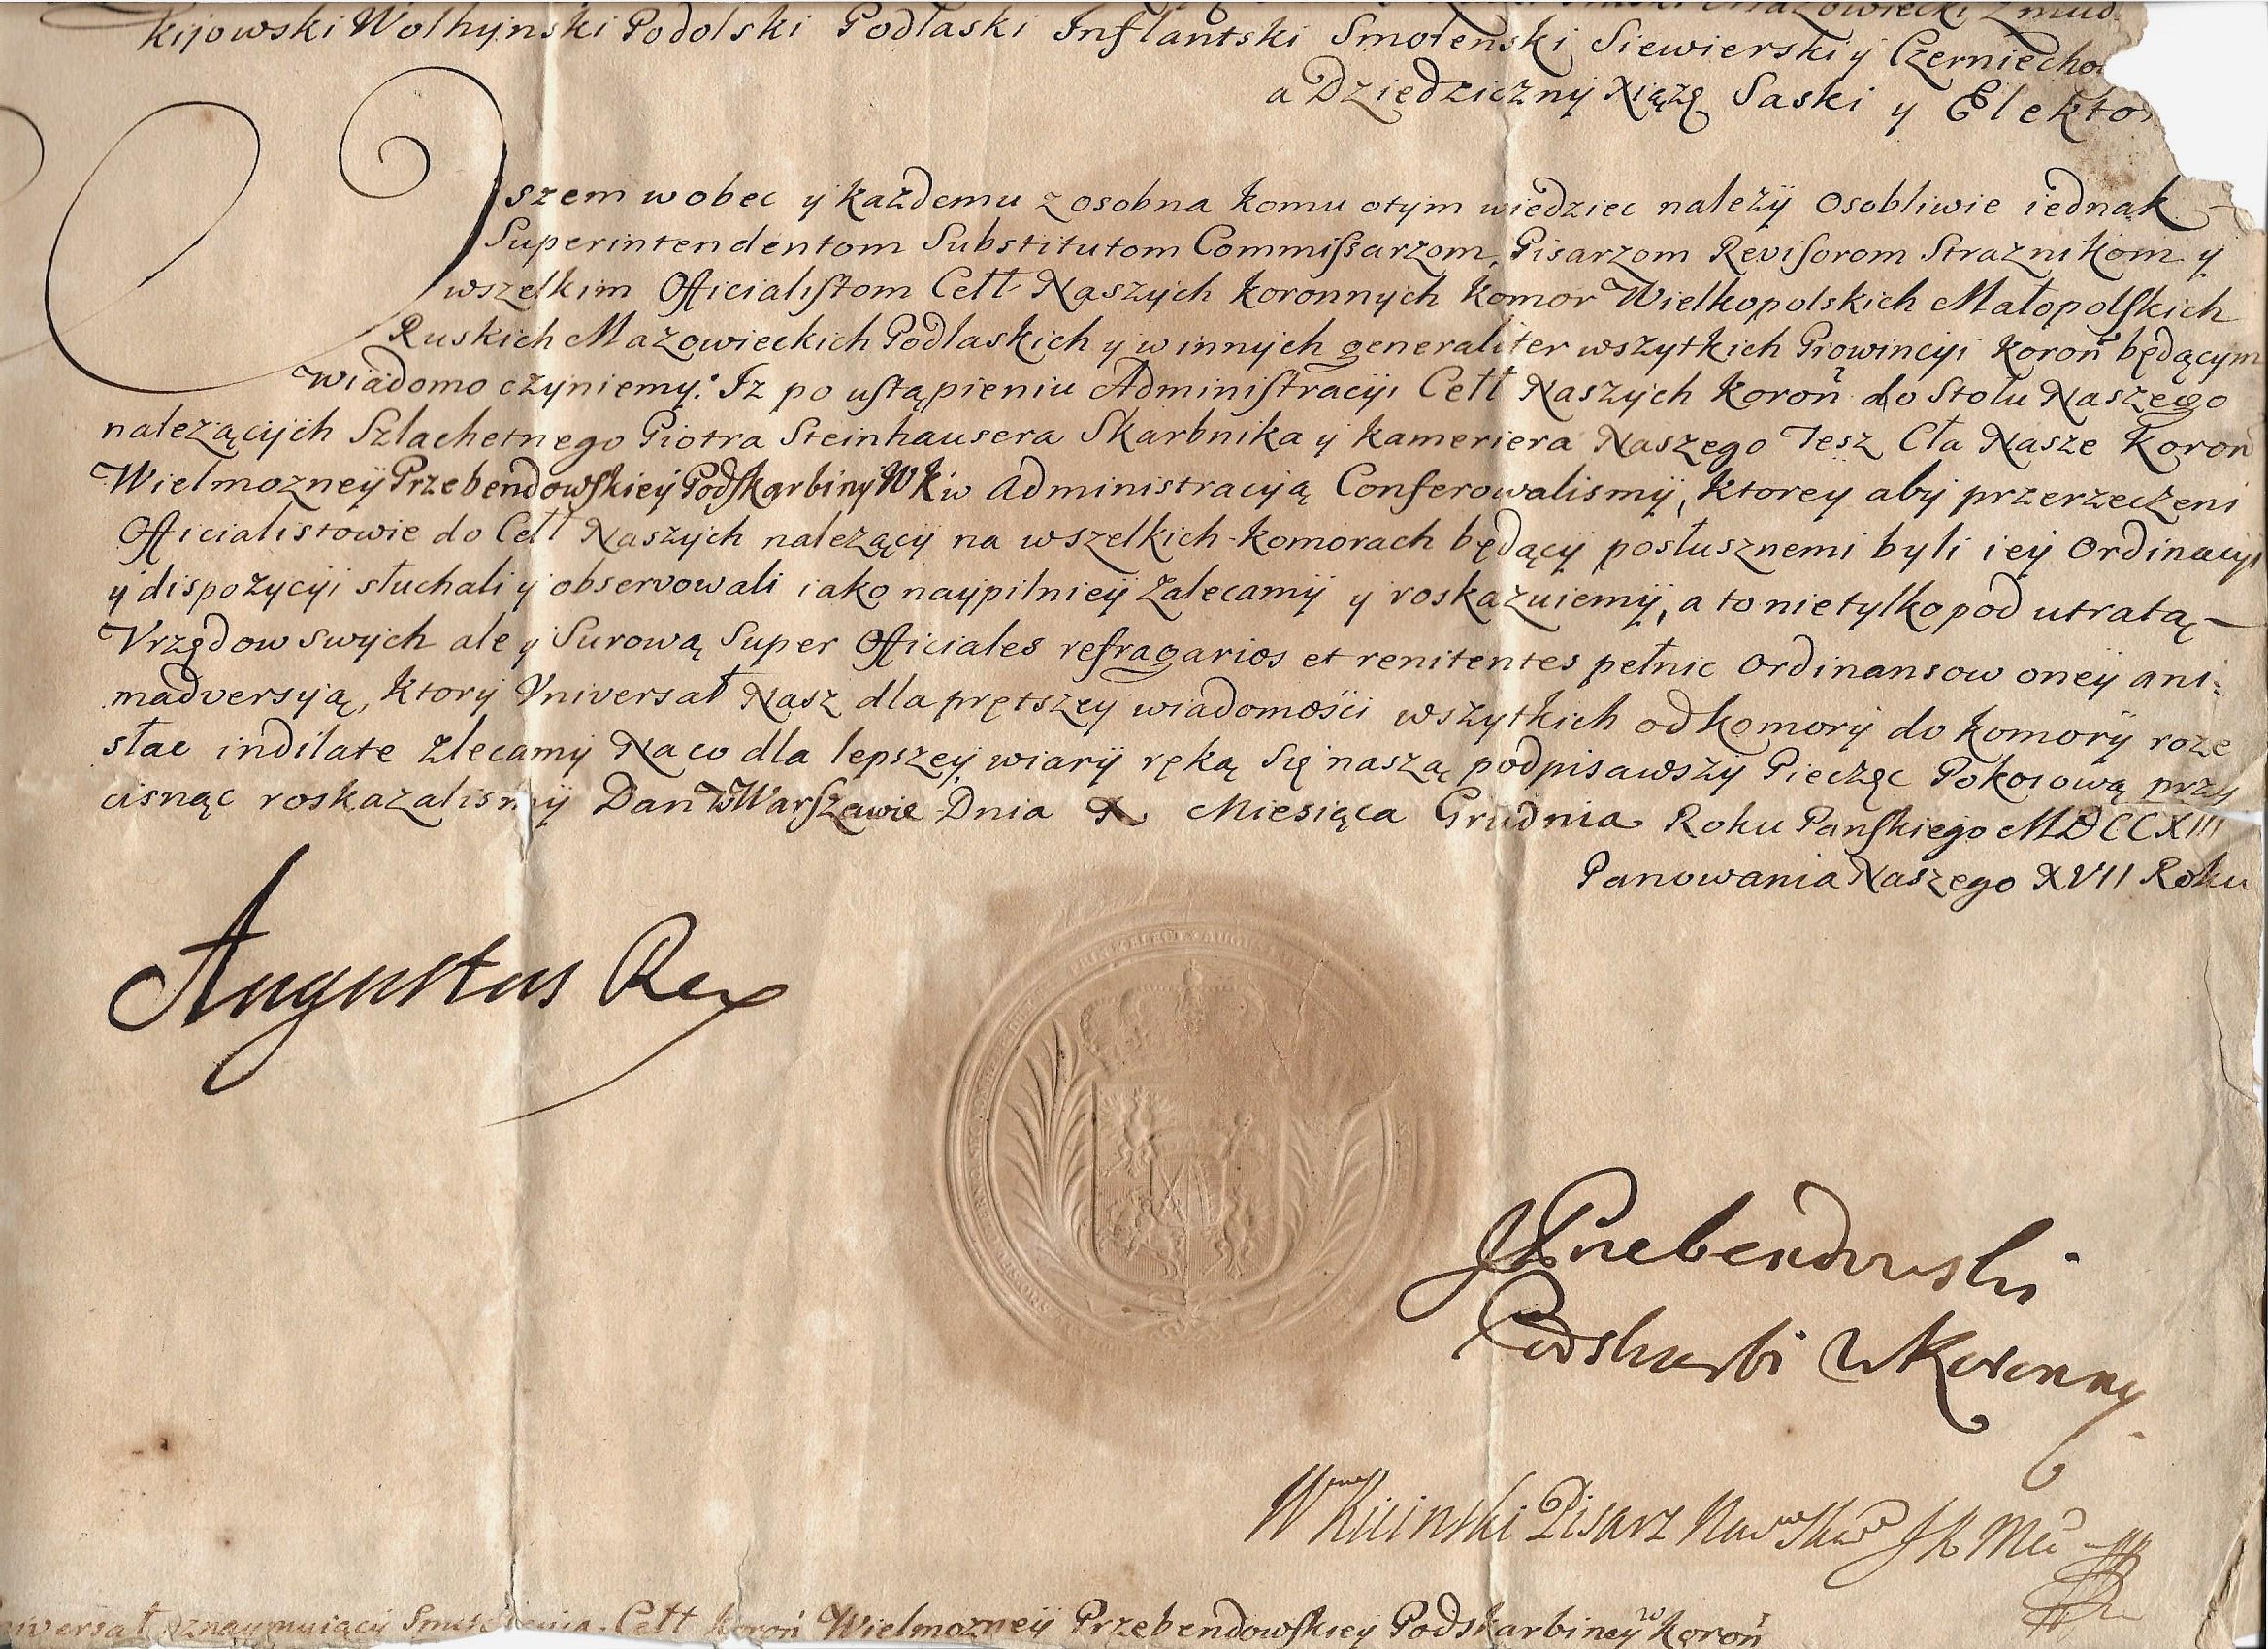 Kijowski Wolhynski Podolski Podlaski Inflantski Smolenski Siewierski y Czerniecho
a Dziedziczny Xiążę Saski y Elekto
Wszem wobec y każdemu z osobna komu o tym wiedziec należy osobliwie iednak
Superintendentom Substitutom Commissarzom, Pisarzom Revisorom Straznikom y
wszelkim Officialistom Cełł Naszych Koronnych Komor Wielkopolskich Małopolskich
Ruskich Mazowieckich Podlaskich y w innych generaliter wszytkich Prowincyi Koroń będącym
wiadomo czyniemy: Iz po ustąpieniu Administracyi Cełł Naszych Koroń do Stołu Naszego
należących Szlachetnego Piotra Steinhausera Skarbnika y Kameriera Naszego Tesz Cła Nasze Koroń
Wielmozney Przebendowskiey Podskarbiny WK w Administracyją Conferowalismy, Ktorey aby przerzeczeni
Officialistowie do Cełł Naszych należący na wszelkich Komorach będący posłusznemi byli iey Ordinacyi
y dispozycyi słuchali y observowali iako naypilniey zalecamy y roskazuiemy, a to nie tylko pod utratą
Vrzędow swych ale y Surową Super Officiales refragarios et renitentes pełnic Ordinansow oney ani:
madversyją, Ktory Vniversał Nasz dla prętszey wiadomości wszytkich od Komory do Komory roze
słac indilate zlecamy Na co dla lepszey wiary ręką Się naszą podpisawszy Pieczęc Pokoiową przy
cisnąc roskazalismy Dan w Warszawie Dnia Miesiąca Grudnia Roku Panskiego MDCCXIII
Panowania Naszego XVII Roku
Augustus Rex
JPrzebendowski
Podskarbi WKoronny
Kicinski Pisarz JKMci
Cełł Koroń Wielmozney Przebendowskiey Podskarbiney w Koroń